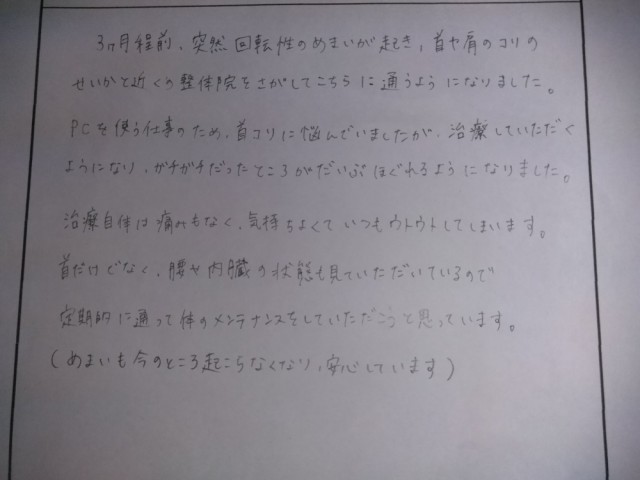 3ヶ月程前、突然回転性のめまいが起き、首や肩のコリの
せいかと近くの整体院をさがしてこちらに通うようになりました。
PCを使う仕事のため、首コリに悩んでいましたが、治療していただく
ようになり、ガチガチだったところがだいぶほぐれるようになりました。
治療自体は痛みもなく、気持ちよくていつもウトウトしてしまいます。
首だけでなく、腰や内臓の状態も見ていただいているので
定期的に通って体のメンテナンスをしていただこうと思っています。
(めまいも今のところ起こらなくなり、安心しています)